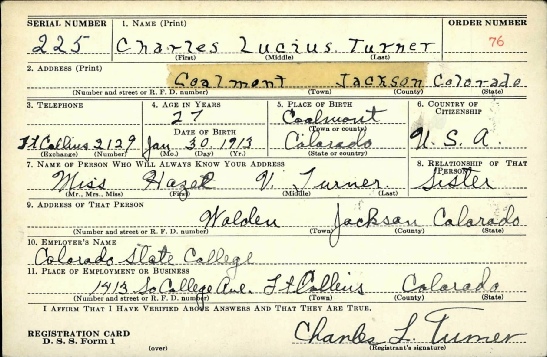 SERIAL NUMBER 1. NAME (Print) ORDER NUMBER
225 Charles Lucius Turner 76
(First) (Middle) (Last)
2. ADDRESS (Print)
Coalmont Jackson Colorado
(Number and street or R. F. D. number) (Town) (County) (State)
3. TELEPHONE 4. AGE IN YEARS 5. PLACE OF BIRTH 6. COUNTRY OF CITIZENSHIP
27 Coalmont
DATE OF BIRTH (Town or county)
Ft Collins 2129 Jan 30, 1913 Colorado U. S. A.
(Exchange) (Number) (Mo.) (Day) (Yr.) (State or country)
7. NAME OF PERSON WHO WILL ALWAYS KNOW YOUR ADDRESS 8. RELATIONSHIP OF THAT PERSON
Miss Hazel V. Turner Sister
(Mr., Mrs., Miss) (First) (Middle) (Last)
9. ADDRESS OF THAT PERSON
Walden Jackson Colorado
(Number and street or R. F. D. number) (Town) (County) (State)
10. EMPLOYER'S NAME
Colorado State College
11. PLACE OF EMPLOYMENT OR BUSINESS
1413 So College Ave. Ft Collins Colorado
(Number and street or R. F. D. number) (Town) (County) (State)
I AFFIRM THAT I HAVE VERIFIED ABOVE ANSWERS AND THAT THEY ARE TRUE.
REGISTRATION CARD
D. S. S. Form 1 (over) Charles L. Turner
(Registrant's signature)